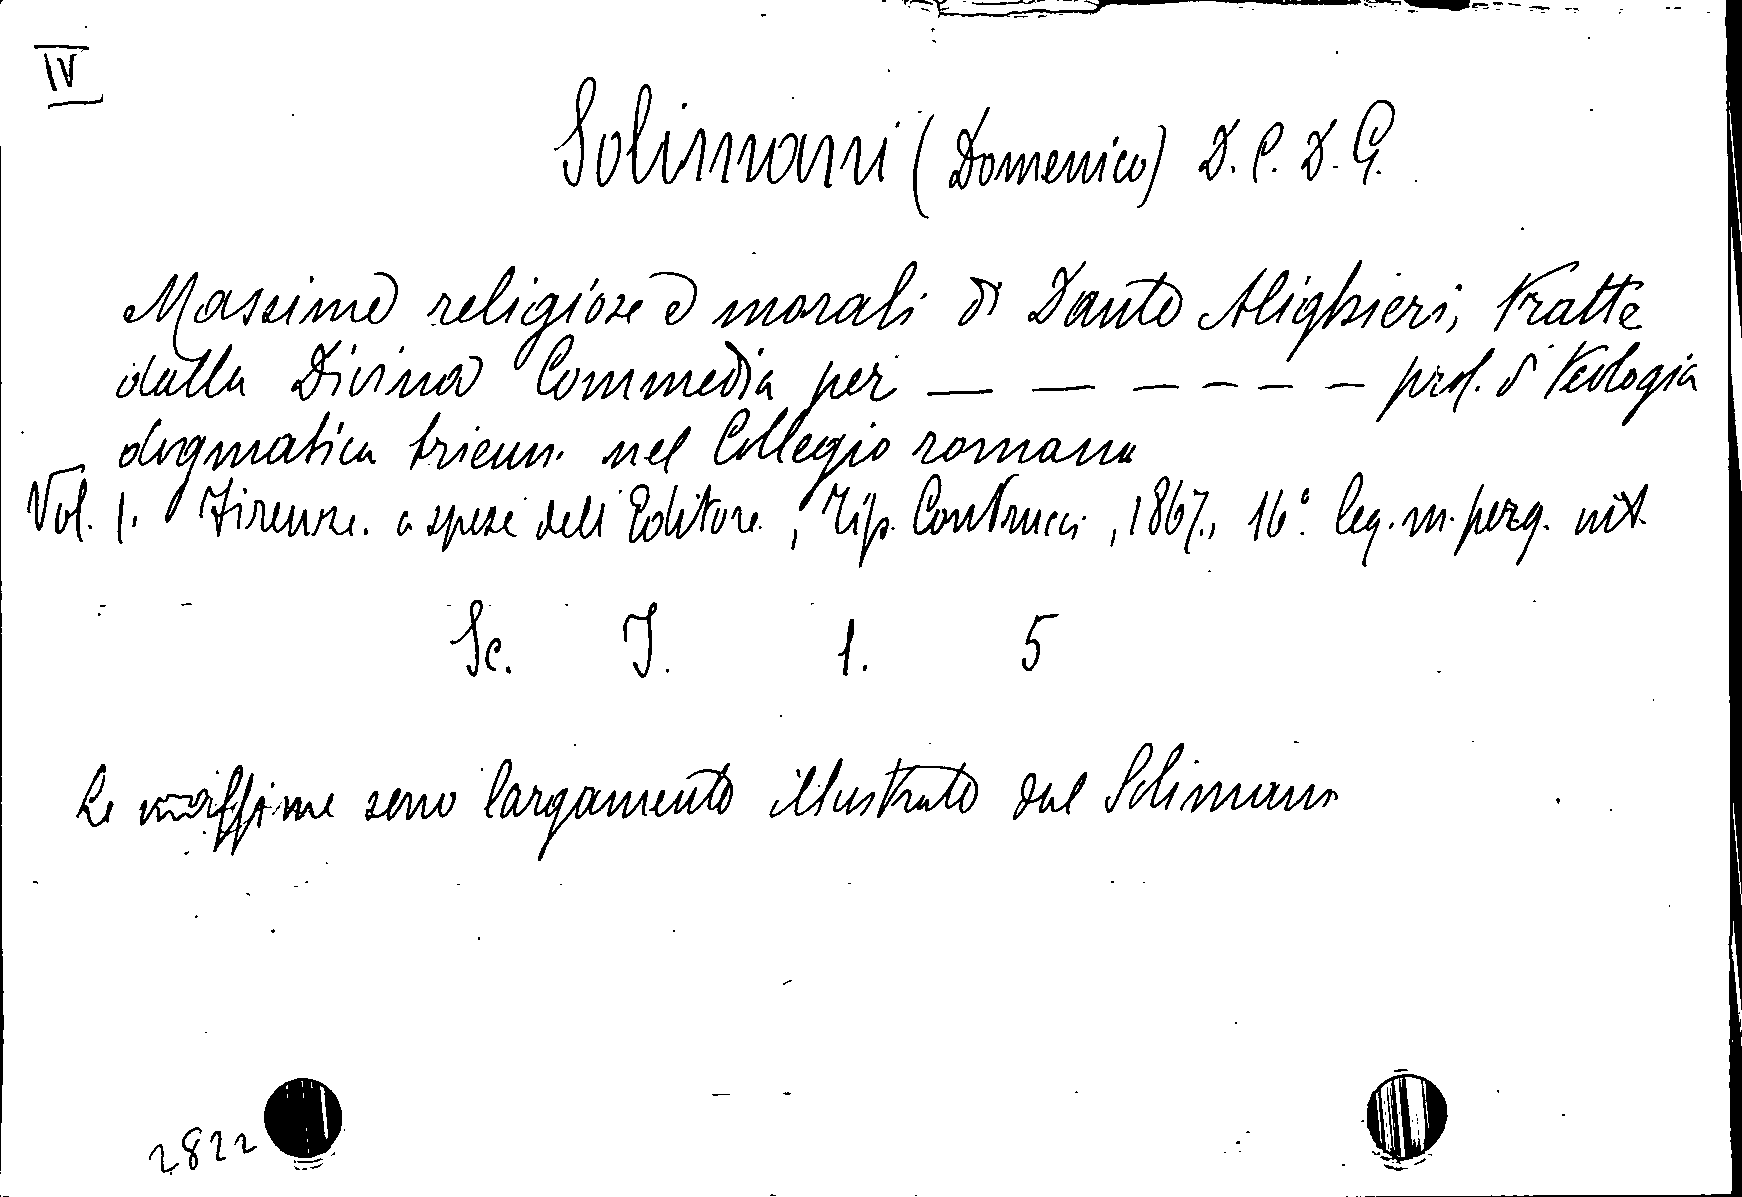 IV
Solimani (Domenico) D. C. D. G.
Massime religiose e morali di Dante Alighieri, tratte
dalla Divina Commedia per — — — — — — prof. di Teologia
dogmatica trienn. nel Collegio romano
Vol. 1. Firenze. a spese dell'Editore, Tip. Contrucci, 1867., 16° leg. m. perg. int.
Sc. I. 1. 5
Le massime sono largamente illustrate dal Solimani
2822